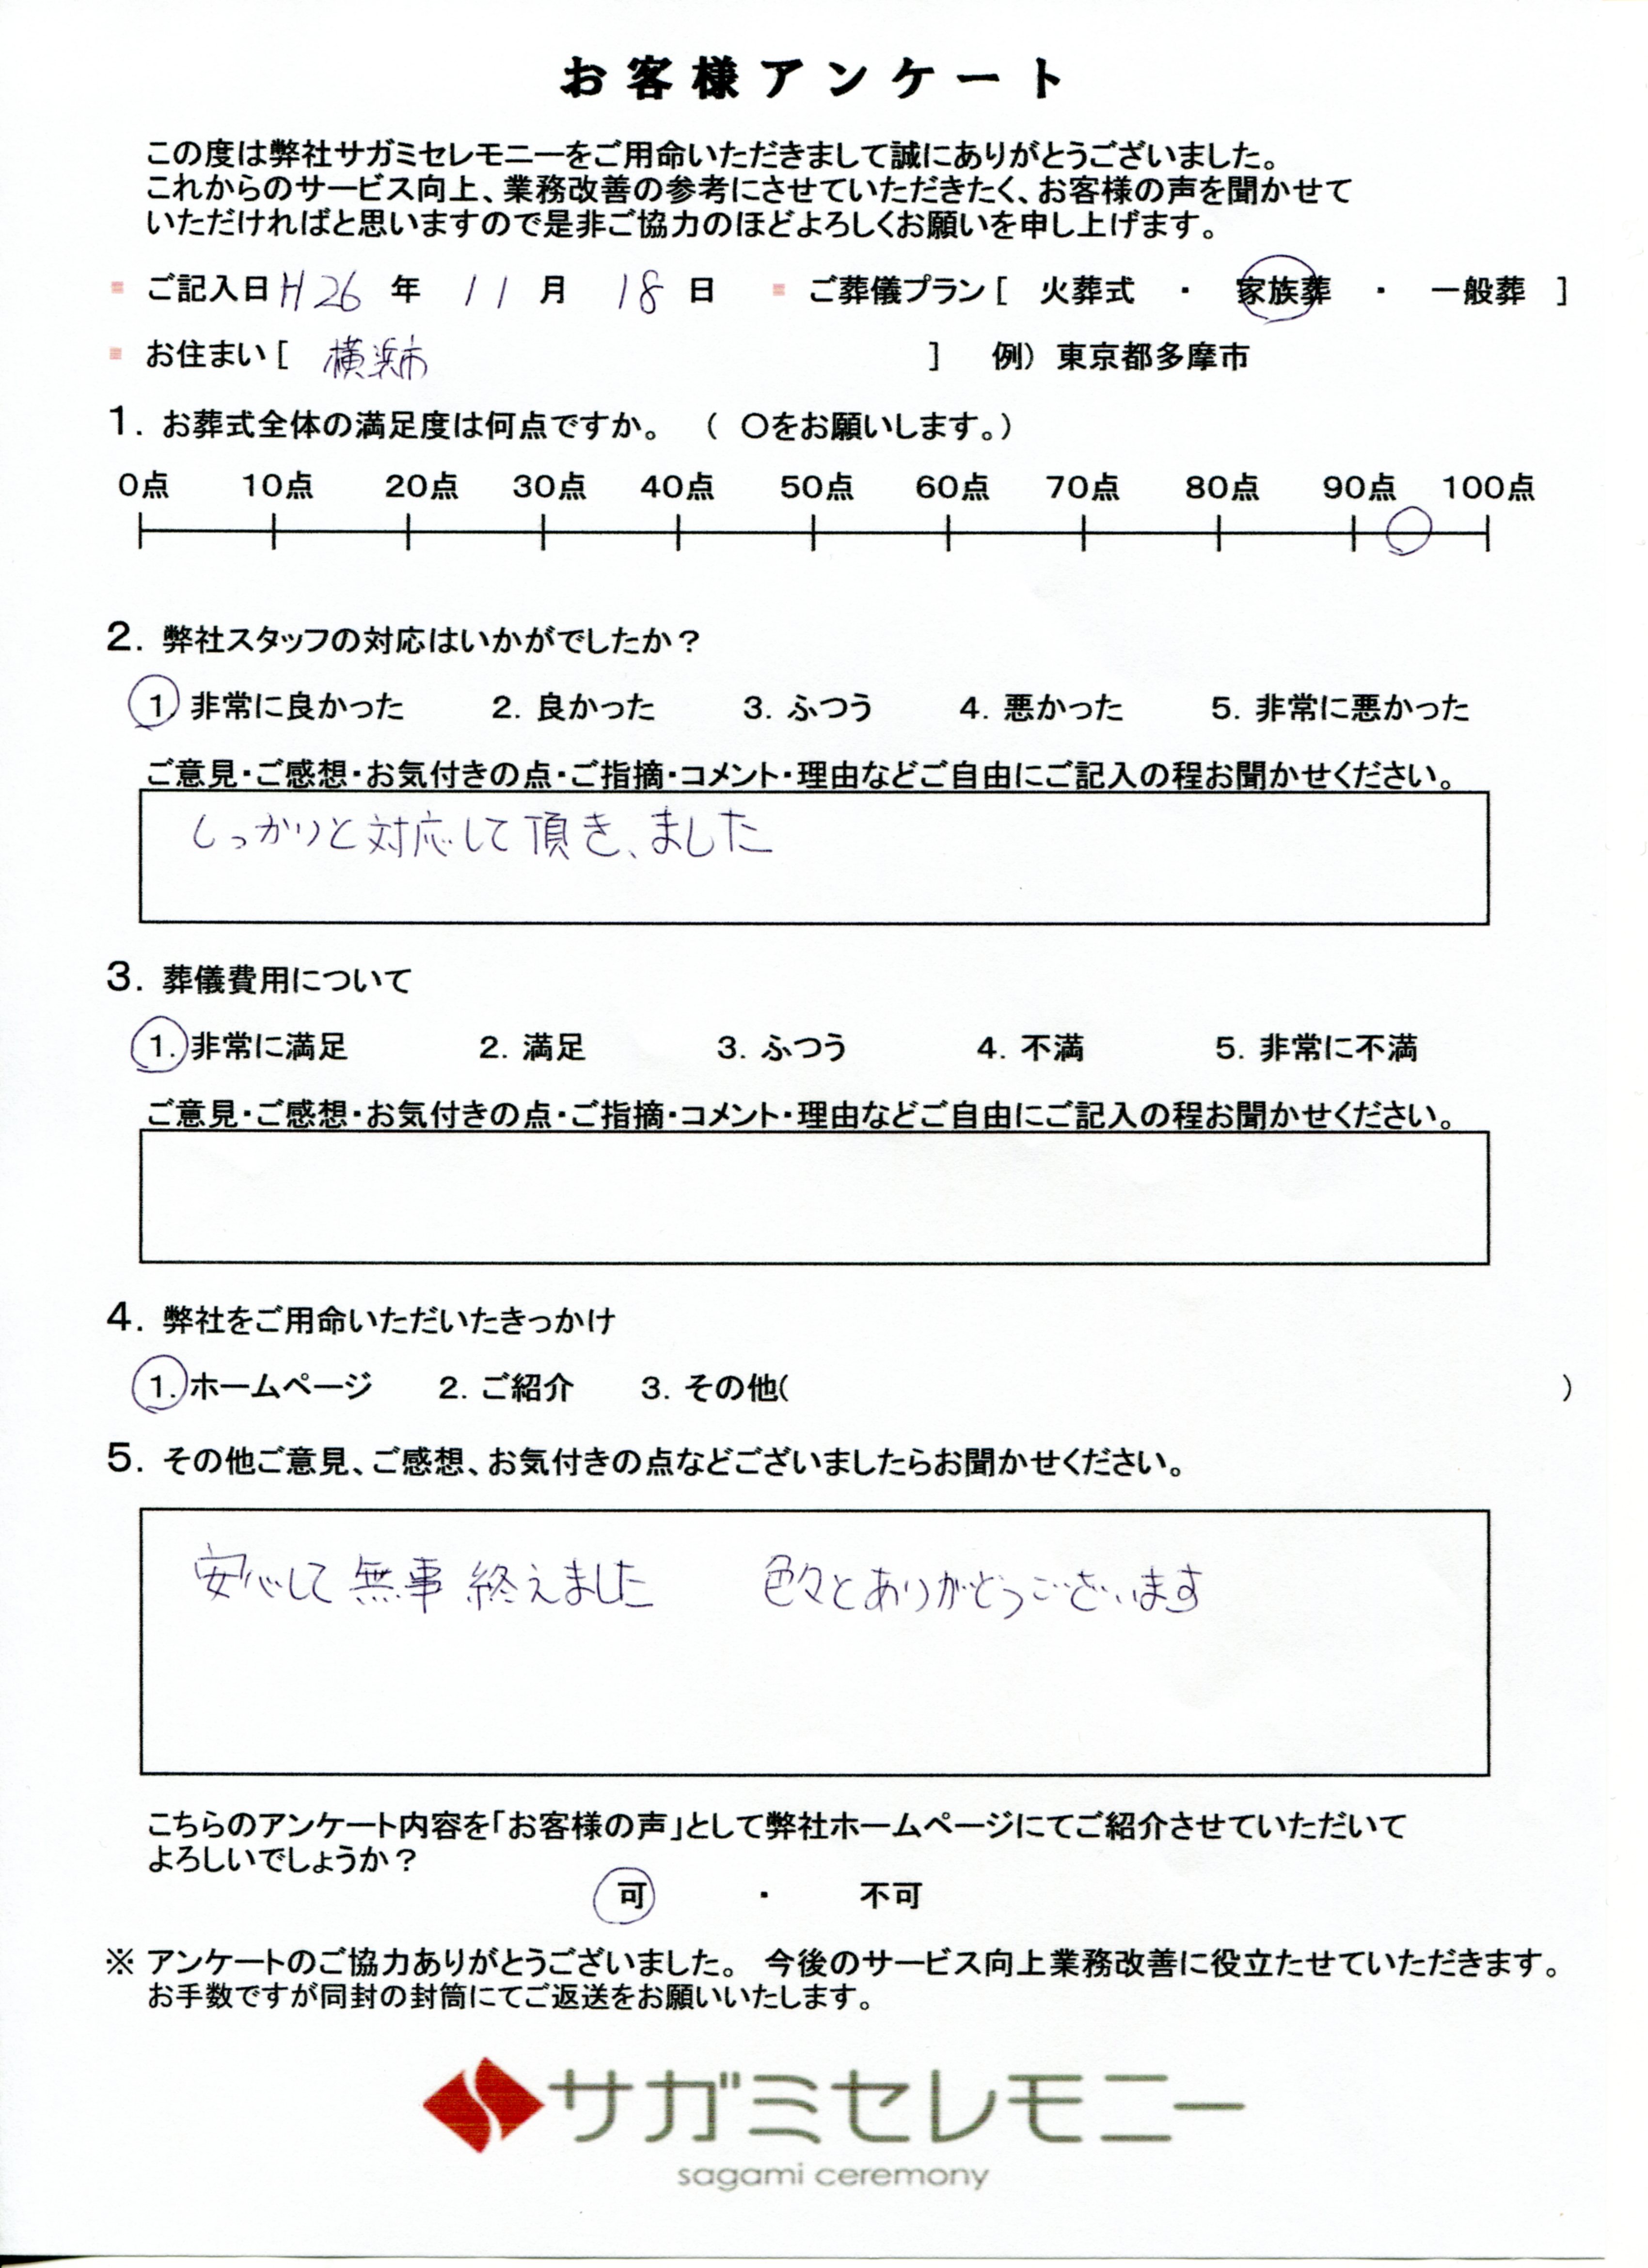 お客様アンケート
この度は弊社サガミセレモニーをご用命いただきまして誠にありがとうございました。
これからのサービス向上、業務改善の参考にさせていただきたく、お客様の声を聞かせて
いただければと思いますので是非ご協力のほどよろしくお願いを申し上げます。
ご記入日 H26 年 11 月 18 日 ご葬儀プラン [ 火葬式 ・ 家族葬 ・ 一般葬 ]
お住まい [ 横浜市 ] 例) 東京都多摩市
1. お葬式全体の満足度は何点ですか。 ( 〇をお願いします。)
0点 10点 20点 30点 40点 50点 60点 70点 80点 90点 100点
2. 弊社スタッフの対応はいかがでしたか?
1. 非常に良かった 2. 良かった 3. ふつう 4. 悪かった 5. 非常に悪かった
ご意見・ご感想・お気付きの点・ご指摘・コメント・理由などご自由にご記入の程お聞かせください。
しっかりと対応して頂き、ました
3. 葬儀費用について
1. 非常に満足 2. 満足 3. ふつう 4. 不満 5. 非常に不満
ご意見・ご感想・お気付きの点・ご指摘・コメント・理由などご自由にご記入の程お聞かせください。
4. 弊社をご用命いただいたきっかけ
1. ホームページ 2. ご紹介 3. その他( )
5. その他ご意見、ご感想、お気付きの点などございましたらお聞かせください。
安心して無事終えました 色々とありがとうございます
こちらのアンケート内容を「お客様の声」として弊社ホームページにてご紹介させていただいて
よろしいでしょうか?
可 ・ 不可
※ アンケートのご協力ありがとうございました。 今後のサービス向上業務改善に役立たせていただきます。
お手数ですが同封の封筒にてご返送をお願いいたします。
サガミセレモニー
sagami ceremony